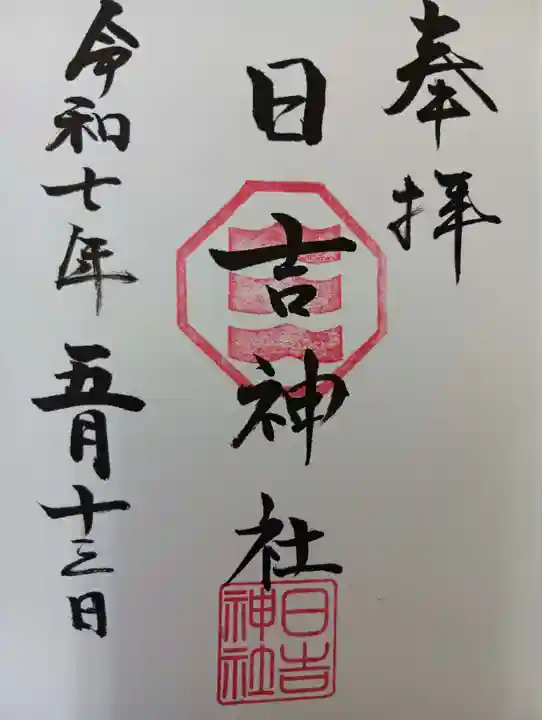 奉拝
日吉神社
日吉神社
令和七年五月十三日